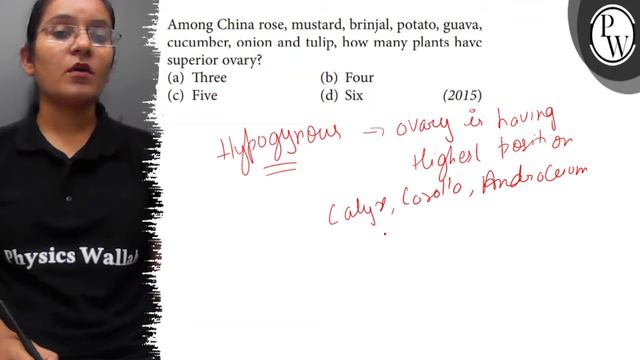 Among China rose, mustard, brinjal, potato, guava,
cucumber, onion and tulip, how many plants have
superior ovary?
(a) Three (b) Four
(c) Five (d) Six (2015)
Hypogynous → ovary is having
Highest position
Calyx, Corolla, Androecium
PW
Physics Wallah